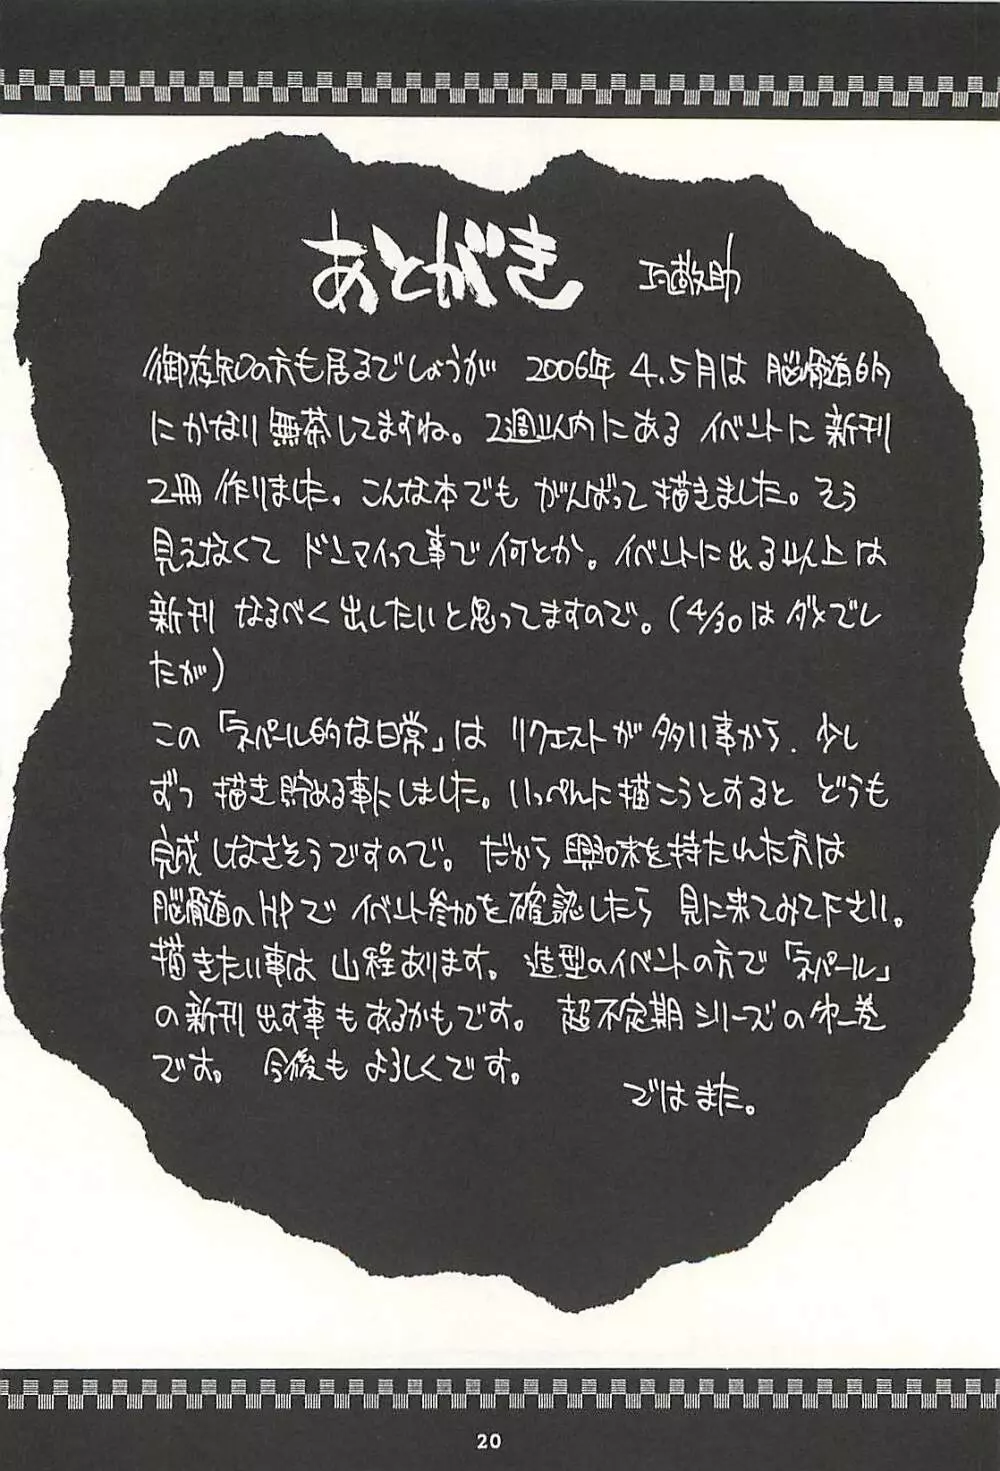 あとがき 巧敬助
御存知の方も居るでしょうが 2006年 4.5月は 脳髄的
にかなり無茶してますね。2週以内にある イベントに 新刊
2冊 作りました。こんな本でも がんばって描きました。そう
見えなくて ドンマイって事で 何とか。イベントに出る以上は
新刊 なるべく出したいと思ってますので。(4/30は ダメでし
たが)
この「ネパール的な日常」は リクエストが多い事から、少し
ずつ 描き貯める事にしました。いっぺんに描こうとすると どうも
完成しなさそうですので。だから 興味を持たれた方は
脳髄のHPで イベント参加を確認したら 見に来てみて下さい。
描きたい事は 山程あります。造型のイベントの方で「ネパール」
の新刊出す事もあるかもです。 超不定期シリーズの第一巻
です。 今後も よろしくです。
ではまた。
20